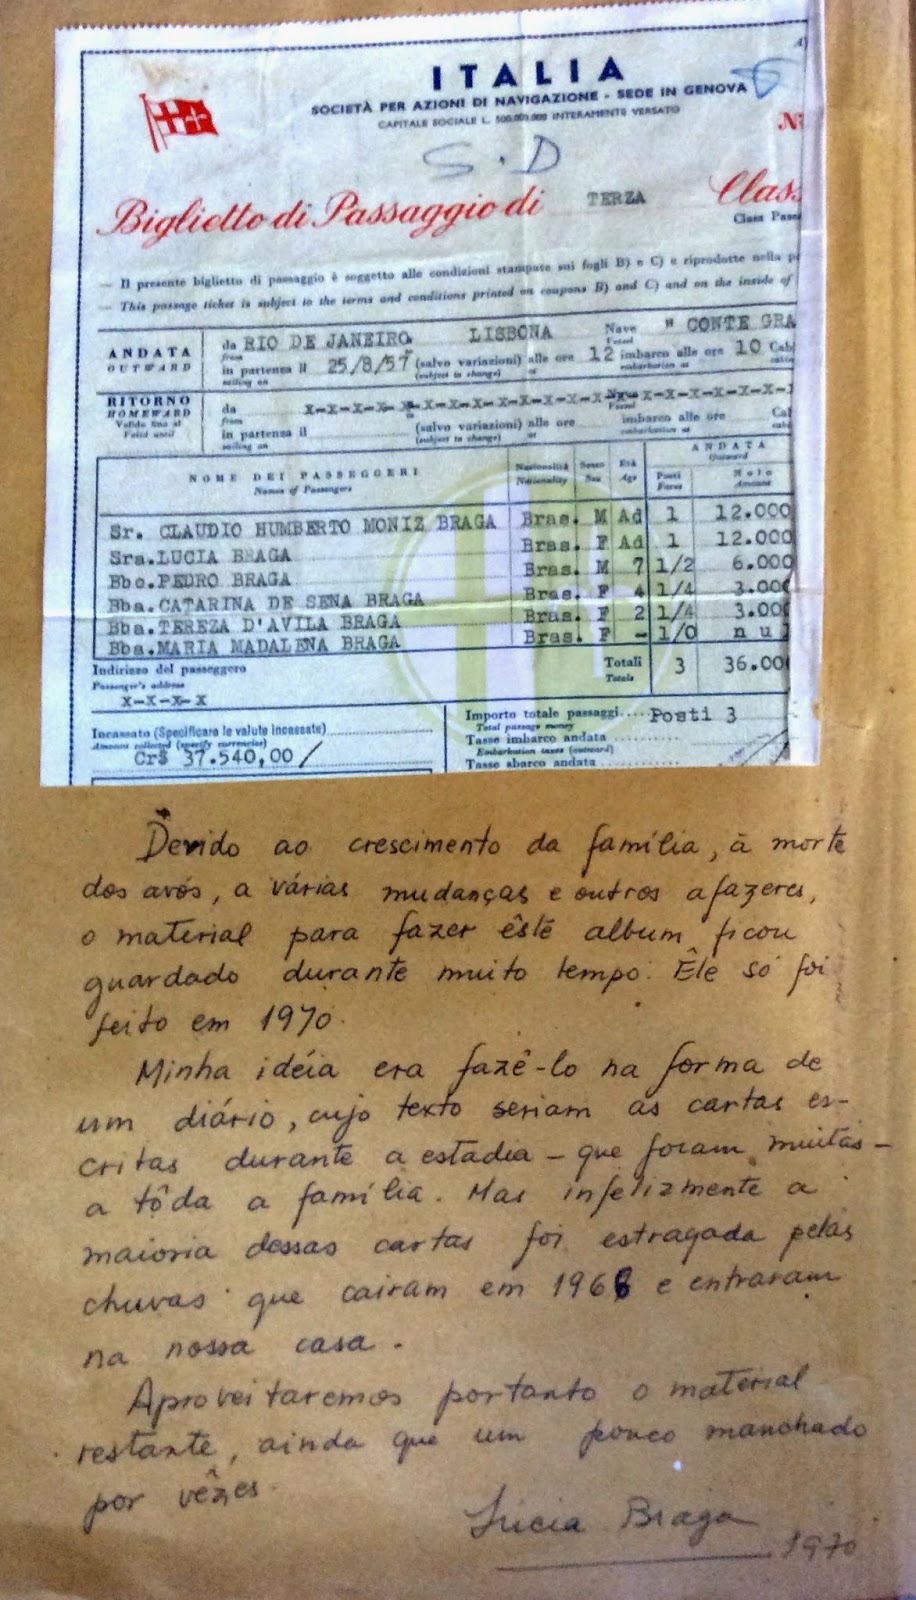 ITALIA
SOCIETÀ PER AZIONI DI NAVIGAZIONE - SEDE IN GENOVA
CAPITALE SOCIALE L. 500.000.000 INTERAMENTE VERSATO
S.D
Biglietto di Passaggio di TERZA Clas
Class Pass
— Il presente biglietto di passaggio è soggetto alle condizioni stampate sui fogli B) e C) e riprodotte nella p
— This passage ticket is subject to the terms and conditions printed on coupons B) and C) and on the inside of
ANDATA da RIO DE JANEIRO LISBONA Nave " CONTE GRA
OUTWARD from Vessel
in partenza il 25/8/57 (salvo variazioni) alle ore 12 imbarco alle ore 10 Cab
sailing on (subject to change) at embarkation at
RITORNO da X-X-X-X-X-X-X-X-X-X-X-X-X-X-X-X-X-X-X-X-X
HOMEWARD from
Valido fino al in partenza il (salvo variazioni) alle ore imbarco alle ore Cal
Valid until sailing on (subject to change) at embarkation at
ANDATA
Outward
NOME DEI PASSEGGERI Nazionalità Sesso Età Posti Nolo
Names of Passengers Nationality Sex Age Fares Amount
Sr. CLAUDIO HUMBERTO MONIZ BRAGA Bras. M Ad 1 12.000
Sra.LUCIA BRAGA Bras. F Ad 1 12.000
Bbo.PEDRO BRAGA Bras. M 7 1/2 6.000
Bba.CATARINA DE SENA BRAGA Bras. F 4 1/4 3.000
Bba.TEREZA D'AVILA BRAGA Bras. F 2 1/4 3.000
Bba.MARIA MADALENA BRAGA Bras. F - 1/0 nul
Indirizzo del passeggero Totali 3 36.00
Passenger's address Totals
X-X-X-X
Importo totale passaggi.... Posti 3
Total passage money
Incassato (Specificare le valute incassate) Tasse imbarco andata
Amount collected (specify currencies) Embarkation taxes (outward)
Cr$ 37.540,00/ Tasse sbarco andata
Devido ao crescimento da família, à morte
dos avós, a várias mudanças e outros afazeres,
o material para fazer êste album ficou
guardado durante muito tempo. Êle só foi
feito em 1970.
Minha idéia era fazê-lo na forma de
um diário, cujo texto seriam as cartas es-
critas durante a estadia – que foram muitas –
a tôda a família. Mas infelizmente a
maioria dessas cartas foi estragada pelas
chuvas que cairam em 1966 e entraram
na nossa casa.
Aproveitaremos portanto o material
restante, ainda que um pouco manchado
por vêzes.
Lucia Braga
1970